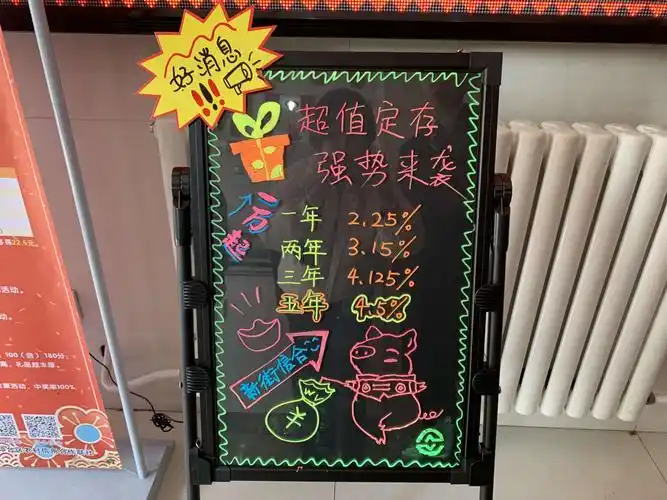 好消息!!!
超值定存
强势来袭
一万起
一年 2.25%
两年 3.15%
三年 4.125%
五年 4.5%
新街信合
¥
100(含)180分,
中奖率100%